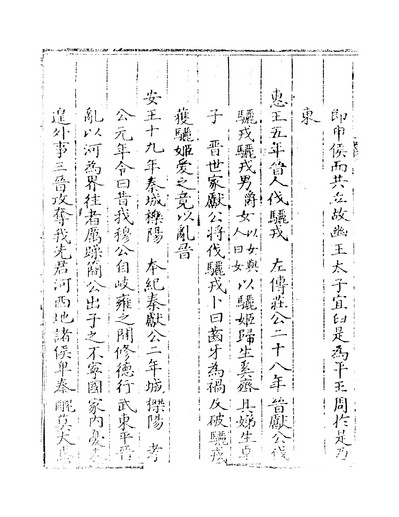 即申侯而共立故幽王太子宜臼是爲平王周於是乃
東
惠王五年晉人伐驪戎　左傳莊公二十八年晉獻公伐
驪戎驪戎男爵女人以女與人曰女以驪姬歸生奚齊其娣生卓
子　晉世家獻公將伐驪戎卜曰齒牙爲禍反破驪戎
獲驪姬愛之竟以亂晉
安王十九年秦城櫟陽　本紀秦獻公二年城櫟陽　考
公元年令曰昔我穆公自岐雍之間修德行武東平晉
亂以河爲界往者厲躁簡公出子之不寧國家內憂未
遑外事三晉攻奪我先君河西地諸侯卑秦醜莫大焉